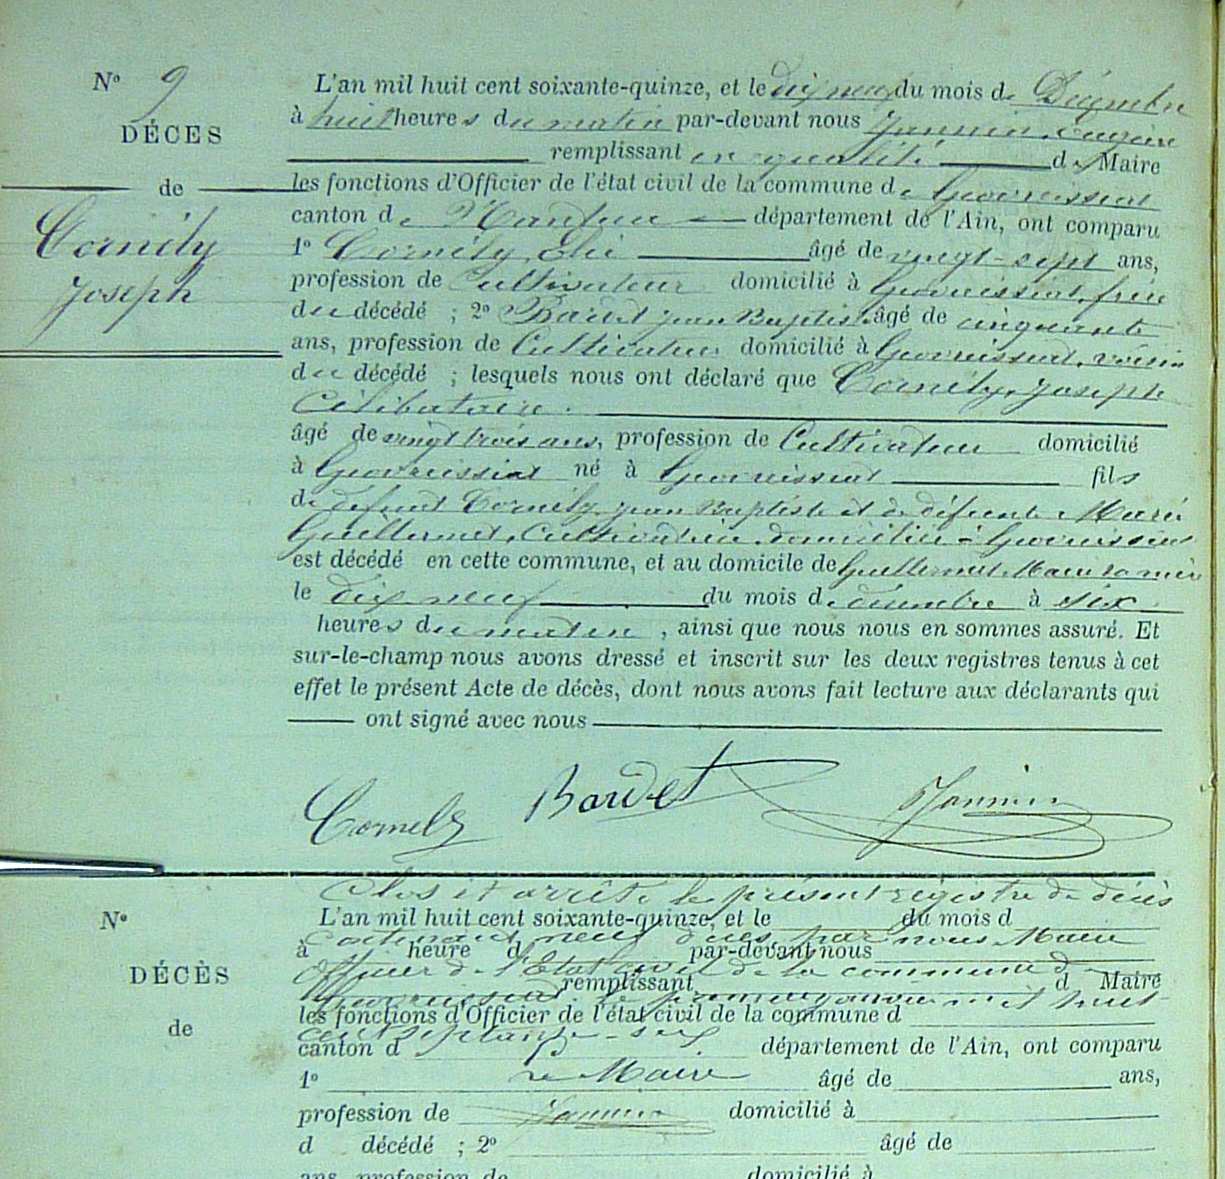 N° 9
DÉCES
de
Cornély
Joseph
L'an mil huit cent soixante-quinze, et le dix neuf du mois de Décembre
à huit heures du matin par-devant nous Jannin, Eugène
remplissant en qualité de Maire
les fonctions d'Officier de l'état civil de la commune de Géovreissiat
canton de Nantua département de l'Ain, ont comparu
1° Cornély, Elie âgé de vingt-sept ans,
profession de Cultivateur domicilié à Géovreissiat, frère
du décédé ; 2° Bardet jean Baptiste âgé de cinquante
ans, profession de Cultivateur domicilié à Géovreissiat, voisin
du décédé ; lesquels nous ont déclaré que Cornély, Joseph
Célibataire.
âgé de vingt trois ans, profession de Cultivateur domicilié
à Géovreissiat né à Géovreissiat fils
de défunt Cornély jean Baptiste et de défunte Marie
Guillermet, Cultivatrice domiciliée à Géovreissiat
est décédé en cette commune, et au domicile de Guillermet Marie sa mère
le dix neuf du mois de décembre à six
heures du matin , ainsi que nous nous en sommes assuré. Et
sur-le-champ nous avons dressé et inscrit sur les deux registres tenus à cet
effet le présent Acte de décès, dont nous avons fait lecture aux déclarants qui
ont signé avec nous
Cornely Bardet Jannin
Clos et arrêté le présent registre de décès
N° L'an mil huit cent soixante-quinze, et le du mois d
contenant neuf actes par nous Maire
à heure d par-devant nous
Officier de l'Etat civil de la commune de
DÉCÈS
remplissant d Maire
Géovreissiat le premier janvier mil huit
les fonctions d'Officier de l'état civil de la commune d
de
cent septante-six
canton d département de l'Ain, ont comparu
Le Maire
1° âgé de ans,
profession de Jannin domicilié à
d décédé ; 2° âgé de
ans, profession de domicilié à